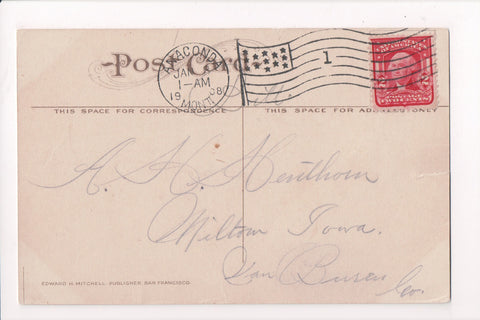 Post Card
ANACONDA
JAN
1-AM
19 08
MONT.
1
THIS SPACE FOR CORRESPONDENCE
THIS SPACE FOR ADDRESS ONLY
POSTAGE
TWO CENTS
A. H. Henthorn
Milton Iowa.
Van Buren
Co.
EDWARD H. MITCHELL, PUBLISHER, SAN FRANCISCO.